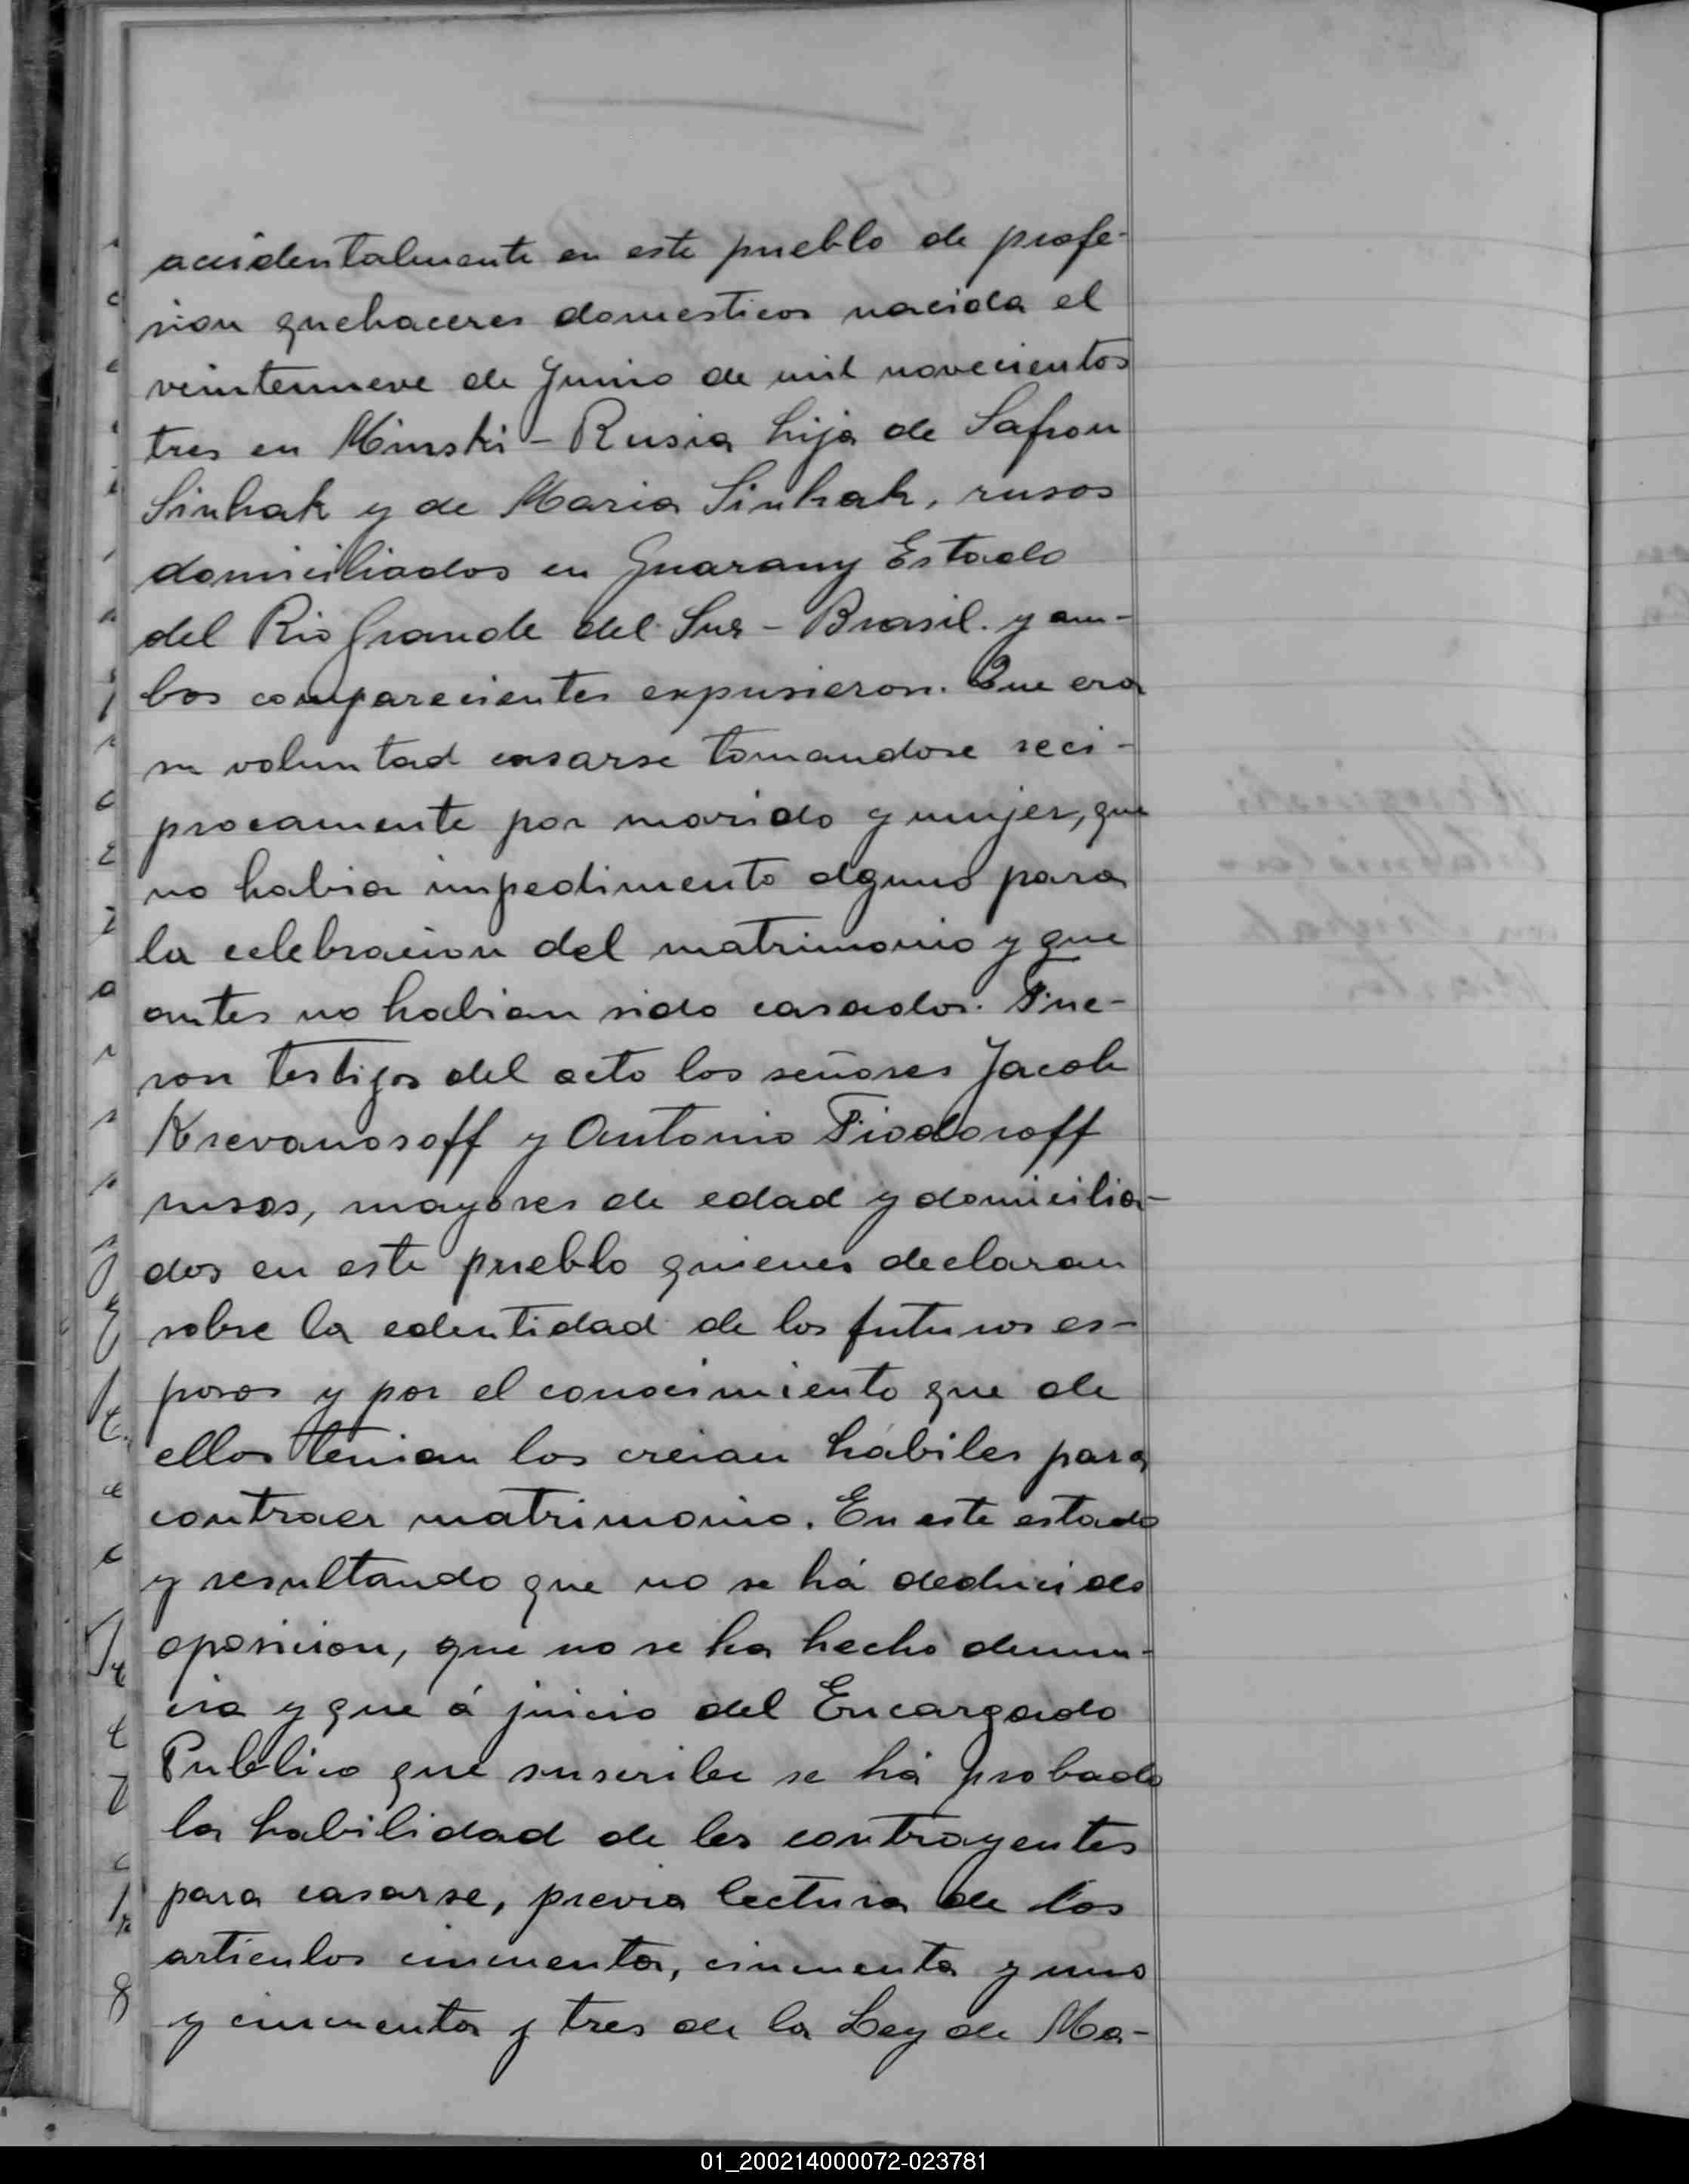 accidentalmente en este pueblo de profe-
sion quehaceres domesticos nacida el
veintenueve de Junio de mil novecientos
tres en Minski - Rusia hija de Safron
Sinhak y de Maria Sinhak, rusos
domiciliados en Guarany Estado
del Rio Grande del Sur - Brasil. y am-
bos comparecientes expusieron. Que era
su voluntad casarse tomandose reci-
procamente por marido y mujer, que
no habia impedimento alguno para
la celebracion del matrimonio y que
antes no habian sido casados. Fue-
ron testigos del acto los señores Jacob
Krevanosoff y Antonio Fiodoroff
rusos, mayores de edad y domicilia-
dos en este pueblo quienes declaran
sobre la edentidad de los futuros es-
posos y por el conocimiento que de
ellos tenian los creian hábiles para
contraer matrimonio. En este estado
y resultando que no se há deducido
oposicion, que no se ha hecho denun-
cia y que á juicio del Encargado
Publico que suscribe se há probado
la habilidad de los contrayentes
para casarse, previa lectura de los
articulos cincuenta, cincuenta y uno
y cincuenta y tres de la Ley de Ma-
01_200214000072-023781